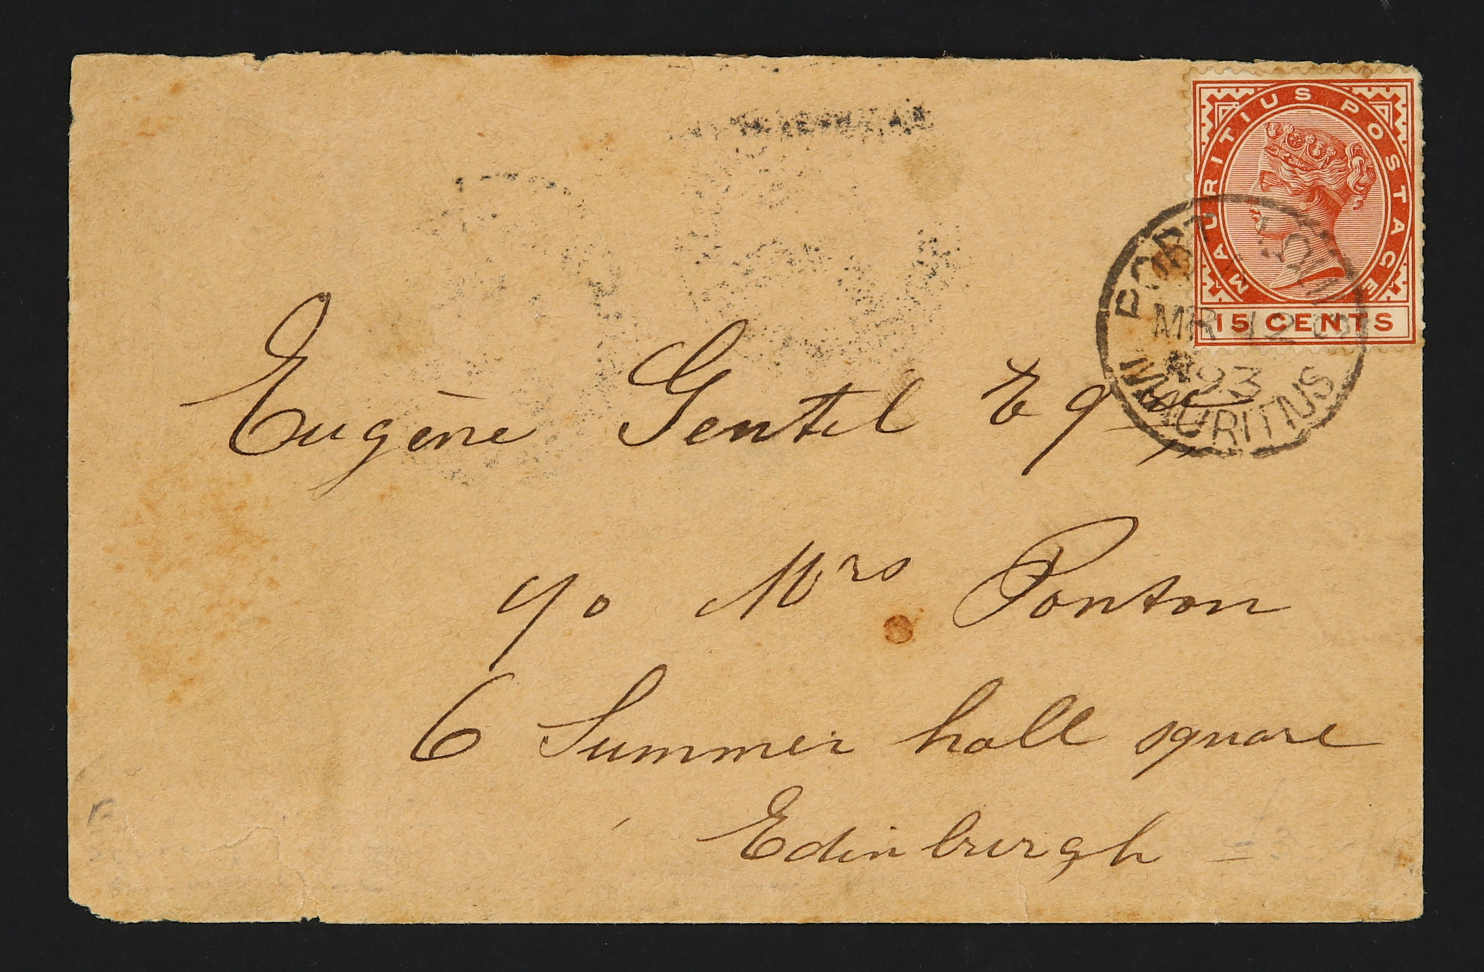 MAURITIUS POSTAGE
15 CENTS
PORT LOUIS
MR 12
93
MAURITIUS
Eugène Gentil Eqr
c/o Mrs Ponton
6 Summer hall square
Edinburgh